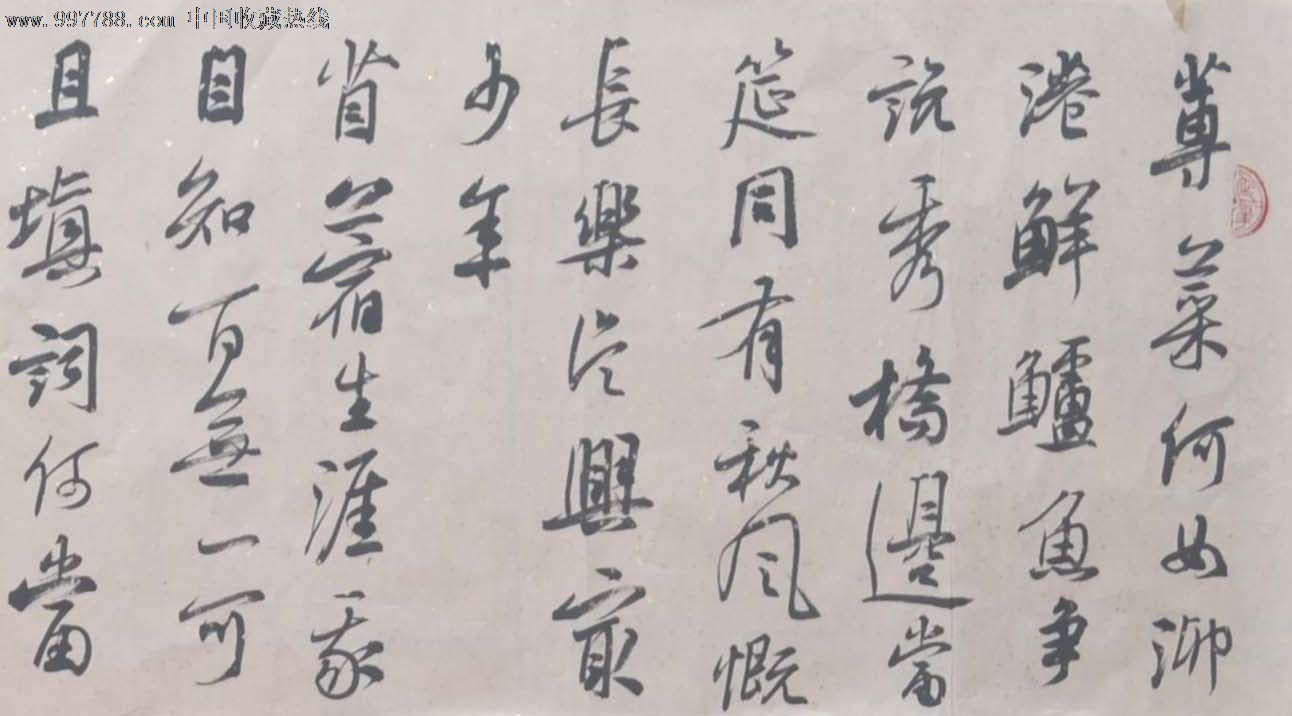 www.997788.com 中国收藏热线
蓴菜何如泖
港鮮鱸魚争
説秀橋邊當
筵同有秋風慨
長樂興最
少年
苜蓿生涯我
自知百無一可
且填詞何當